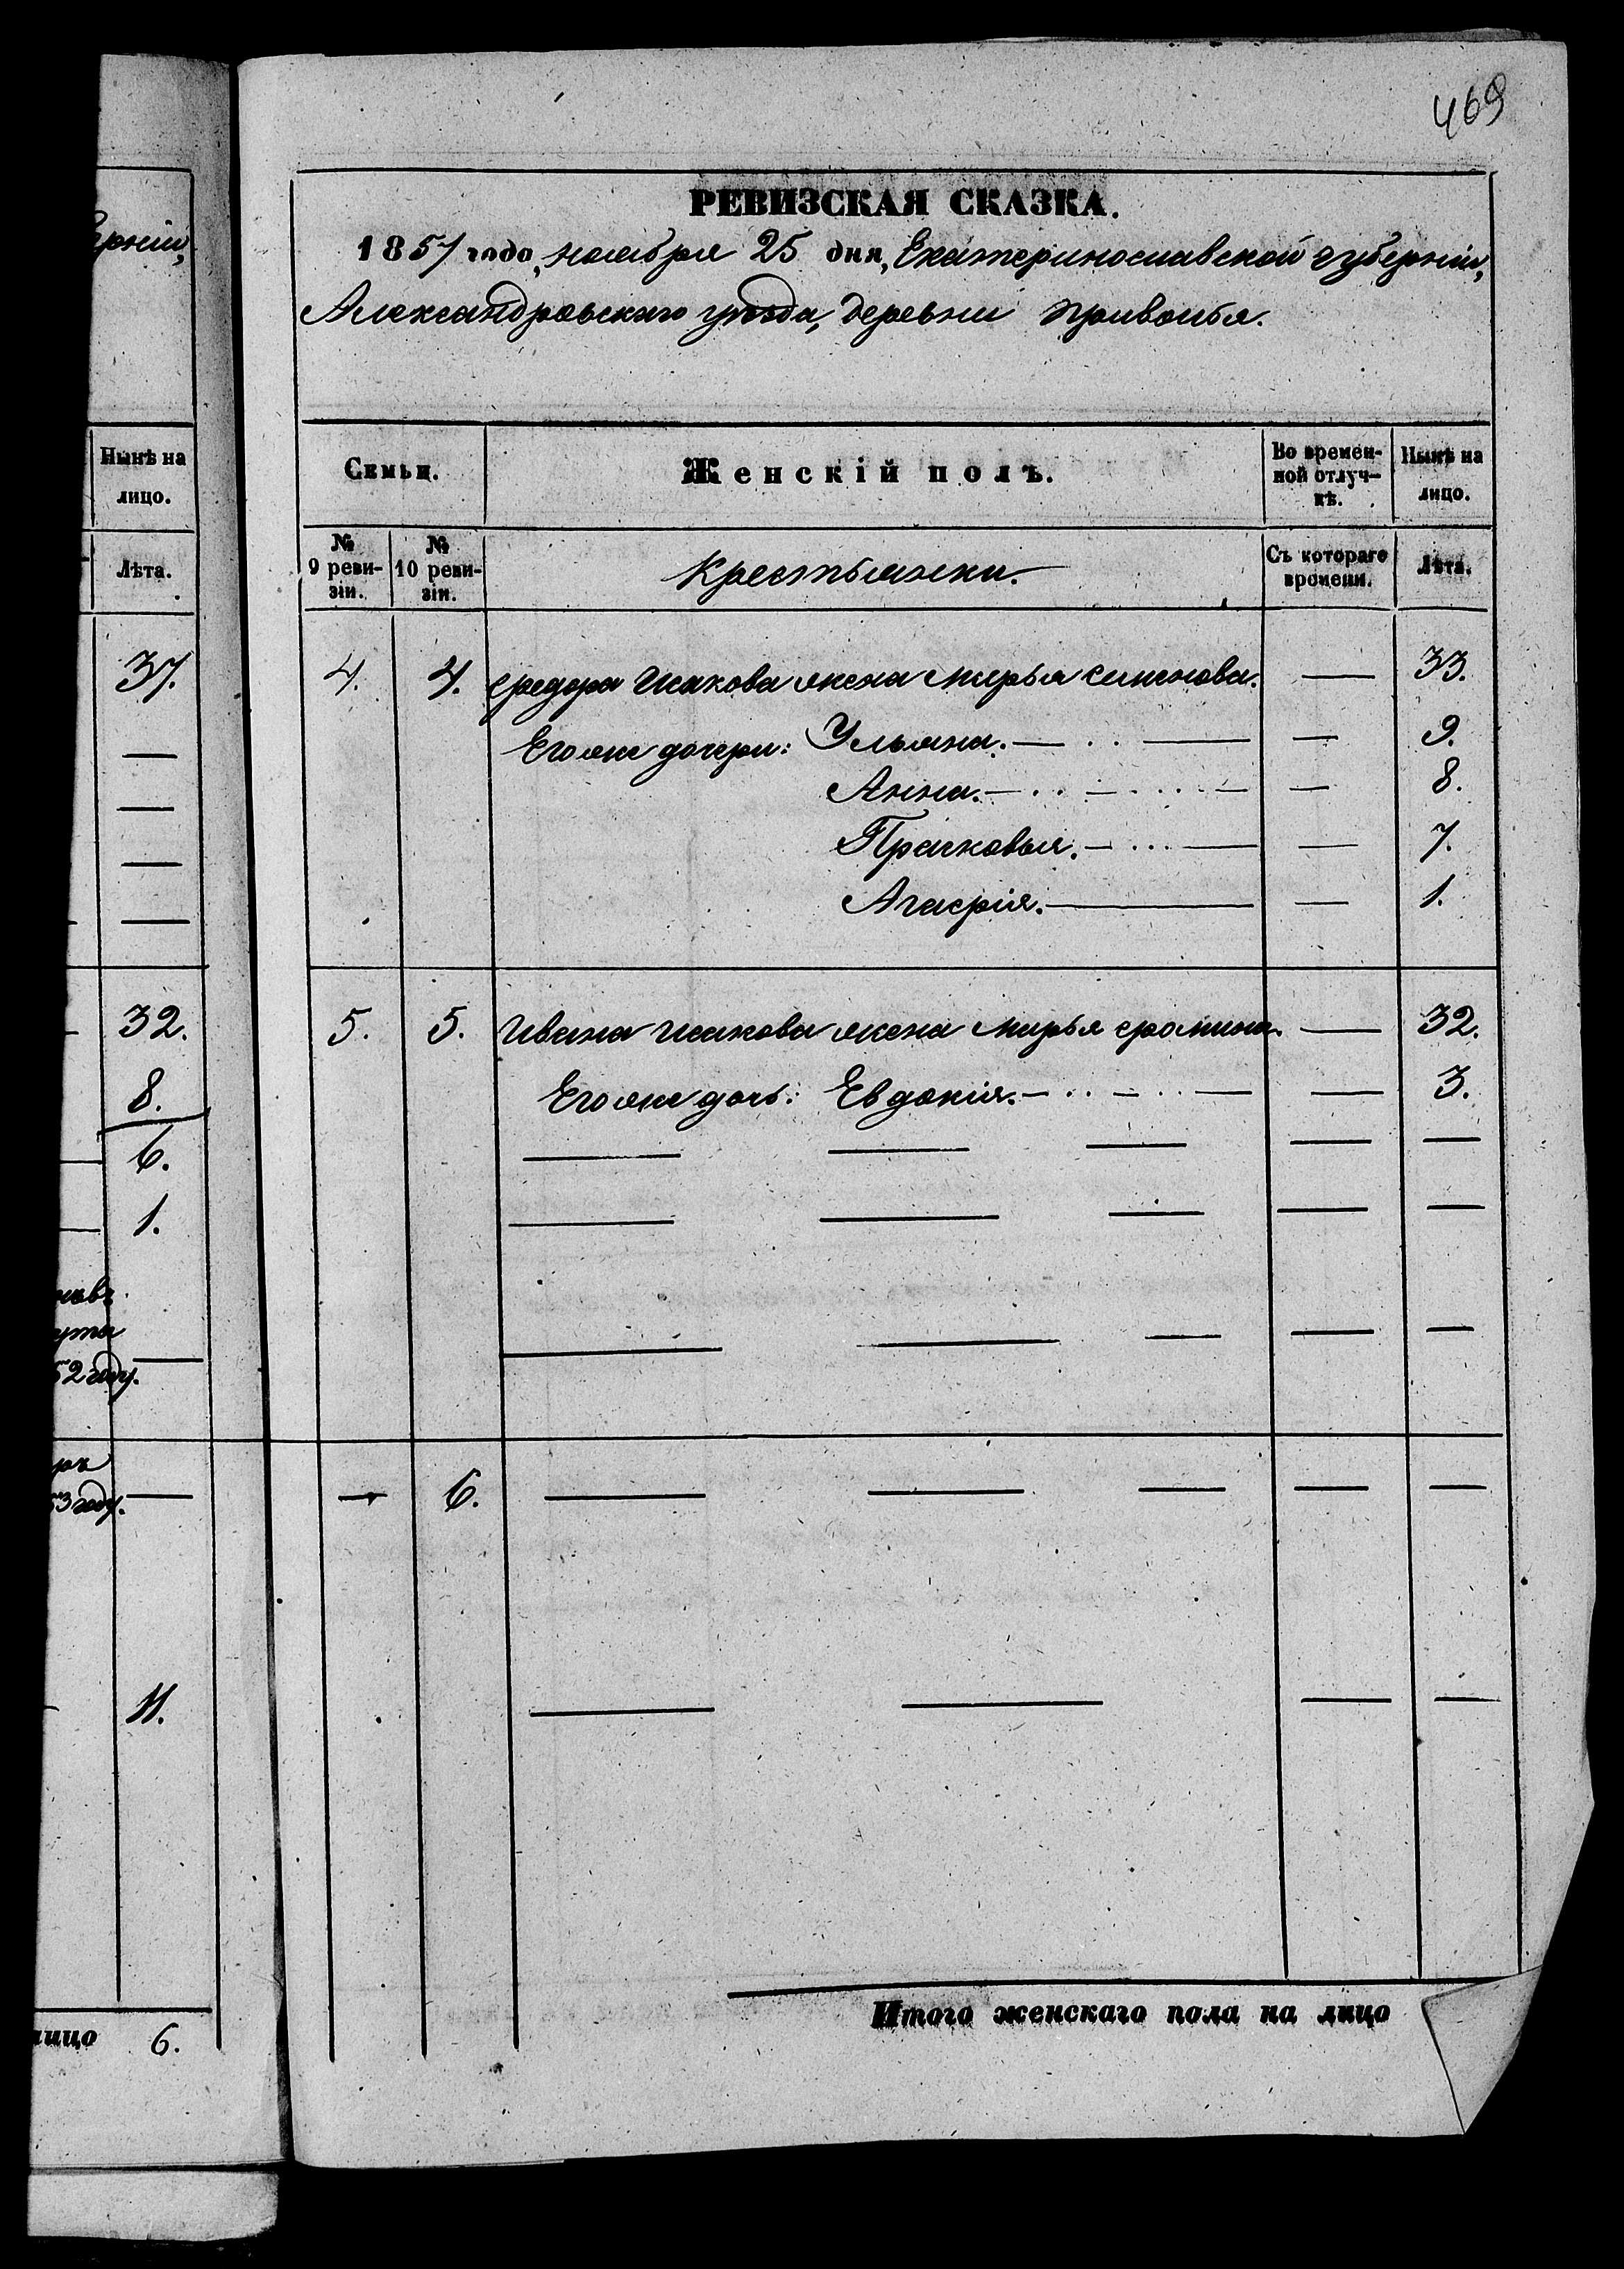 469
РЕВИЗСКАЯ СКАЗКА.
1857 года, ноября 25 дня, Екатеринославской губерніи,
Александровскаго уѣзда, деревни Приволья.
Семьи.
Женскій полъ.
Во времен-
ной отлуч-
кѣ.
Нынѣ на
лицо.
№
9 реви-
зіи.
№
10 реви-
зіи.
Крестьянки.
Съ котораго
времени.
Лѣта.
4. 4. Федора Исакова жена Марья Симонова. — 33.
Его же дочери: Ульяна. — 9.
Анна. — 8.
Прасковья. — 7.
Агафія. — 1.
5. 5. Ивана Исакова жена Марья Фомина. — 32.
Его же дочь: Евдокія. — 3.
— 6. — — — — —
Итого женскаго пола на лицо
Нынѣ на
лицо.
Лѣта.
37.
32.
8.
6.
1.
52 году.
53 году.
11.
лицо 6.